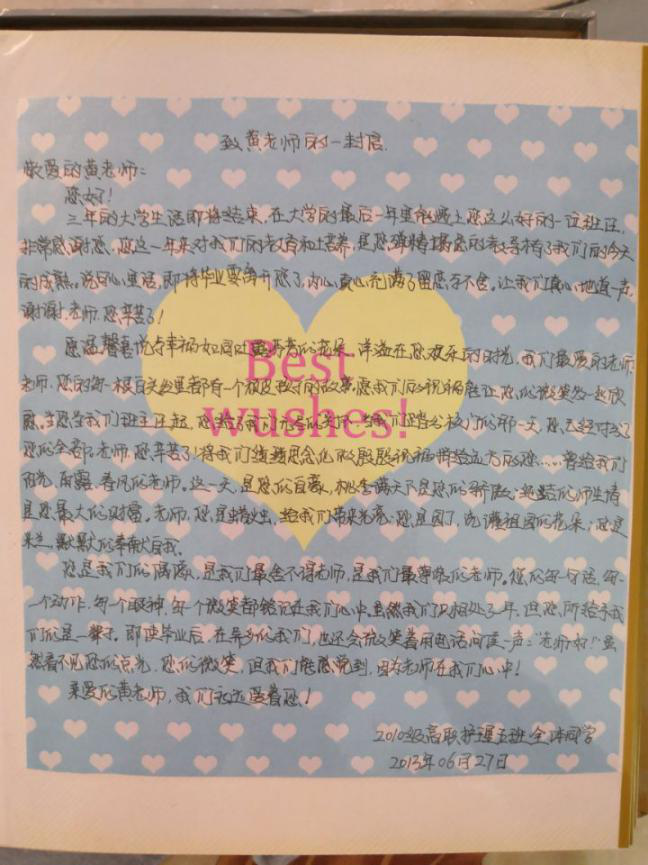 致黄老师的一封信.
敬爱的黄老师:
您好!
三年的大学生活即将结束,在大学的最后一年里能遇上您这么好的一位班主任,
非常感谢您,您这一年来对我们的教育和培养,是您弹精竭虑的教导有了我们的今天
的成熟。说句心里话,即将毕业要离开您了,内心真心充满了留恋与不舍。让我们真心地道一声,
谢谢,老师,您辛苦了!
愿温馨喜悦与幸福如同吐露芳香的花朵,洋溢在您欢乐的时光,我们最爱的老师
老师,您的每一根白发里都有一个故事愿我们的祝福能让您的微笑
您当我们班主任起,您给了我们无尽的关怀,当我们踏出校门的那一天,您已经付出了
您的全部,老师,您辛苦了!将我们缕缕思念化的殷殷祝福捎给远方的您……曾给我们
阳光、雨露、春风的老师,这一天,是您的自豪,桃李满天下是您的骄傲;凝结的师生情
是您最大的财富。老师,您是蜡烛,给我们带来光亮;您是园丁,浇灌祖国的花朵,您是
默默的奉献自我。
您是我们的偶像,是我们最舍不得老师,是我们最尊敬的老师。您的每一句话,每
一个动作,每一个眼神,每一个微笑都铭记在我们心中。虽然我们只相处了一年,但您所给予我
们的是一辈子。即使毕业后,在异乡的我们,也还会微笑着用电话问候一声:“老师好!”虽
然看不见您的目光,您的微笑,但我们能感觉到,因为老师在我们心中!
亲爱的黄老师,我们永远爱着您!
2010级高职护理五班全体同学
2013年06月27日
Best
wushes!